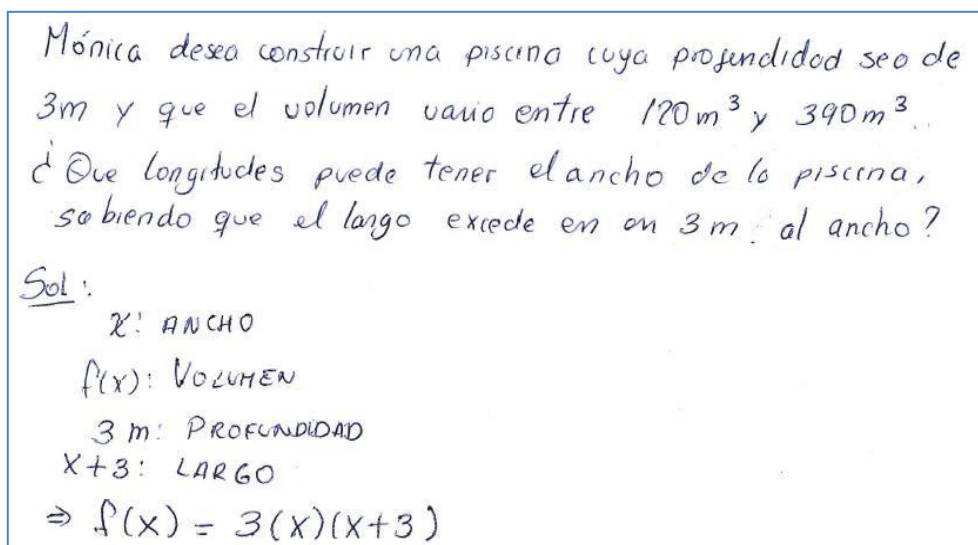 Mónica desea construir una piscina cuya profundidad sea de
3m y que el volumen varia entre 120m³ y 390m³.
¿Que longitudes puede tener el ancho de la piscina,
sabiendo que el largo excede en on 3m. al ancho?
Sol:
x: ANCHO
f(x): VOLUMEN
3 m: PROFUNDIDAD
x+3: LARGO
⇒ f(x) = 3(x)(x+3)